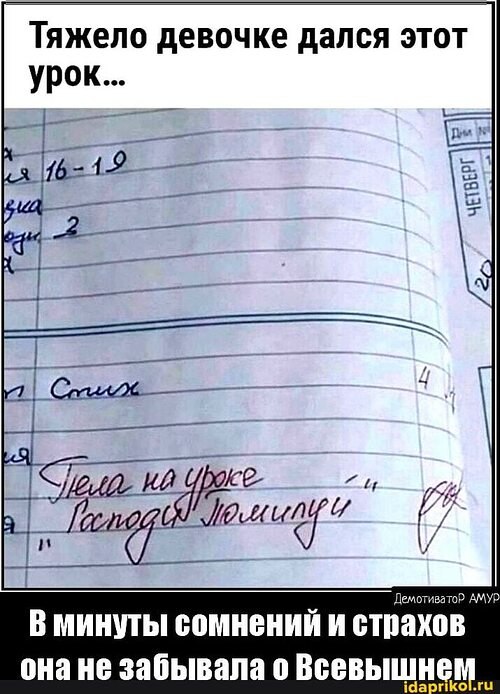 Тяжело девочке дался этот
урок...
Дни
16-19
ЧЕТВЕРГ
3
20
Стих
4
Пела на уроке
"Господи Помилуй"
ДемотиватоР АМУР
В минуты сомнений и страхов
она не забывала о Всевышнем
idaprikol.ru